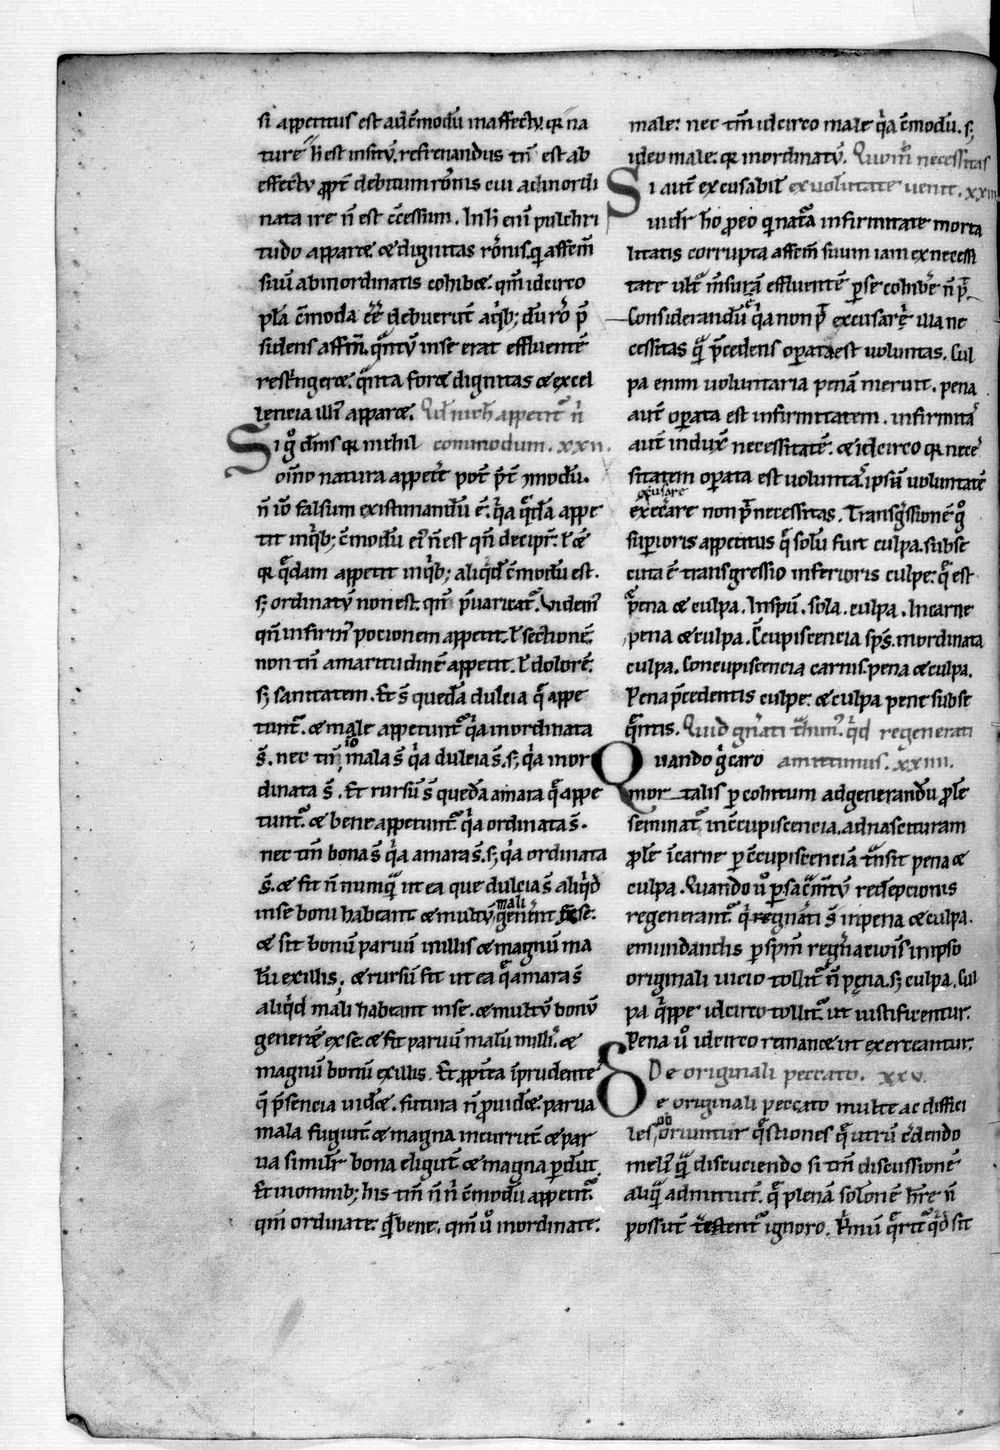 si appetitus est ad c̄modū in affectu. qr na
ture h̄ est insitū. refrenandus tn̄ est ab
effectu ꝓpt̄ debitum rōnis cui ad inordi
nata ire n̄ est c̄cessum. In h̄ eni pulchri
tudo apparet ⁊ dignitas rōnis. q affem̄
suū ab inordinatis cohibet. qm̄ idcirco
pl̄a c̄moda ēē debuerūt a qͥb; dū rō p̄
sidens affm̄. qntū in se erat effluentē
restͥngeret. qnta foret dignitas ⁊ excel
lencia illiꝰ apparet. Qd̓ nich̓ appetit̄ n̄
Si g̊ dm̄s qr nichil commodum. xxii.
om̄o natura appeťe pot̄ p̄t ꝯmodū.
n̄ iō falsum existimandū ē. qͥa qͣdā appe
tit in qͥb; c̄modū eiꝰ n̄ est qn̄ decipr̄. ł ēē
qr qͣdam appetit in qͥb; aliqͥd c̄modū est.
s; ordinatū non est. qn̄ p̄uaricat̄. Videmꝰ
qn̄ infirmꝰ pocionem appetit. ł sectionē.
non tn̄ amaritudinē appetit. ł dolorē.
s; sanitatem. Et s̄ quedā dulcia q̄ appe
tunt̄. ⁊ male appetunt̄ qͥa inordinata
s̄. nec tn̄ iō mala s̄ qͥa dulcia s̄. s; qͥa inor
dinata s̄. Et rursū s̄ quedā amara q̄ appe
tunt̄. ⁊ bene appetunt̄ qͥa ordinata s̄.
nec tn̄ bona s̄ qͥa amara s̄. s; qͥa ordinata
s̄. ⁊ fit n̄ numqͣ ut ea que dulcia s̄ aliqͥd
in se boni habeant ⁊ multū mali gen̄ent ex se.
⁊ sit bonū paruū in illis ⁊ magnū ma
lū ex illis. ⁊ rursū fit ut ea q̄ amara s̄
aliqͥd mali habeant in se. ⁊ multū bonū
generēt ex se. ⁊ fit paruū malū in illiꝰ. ⁊
magnū bonū ex illis. Et ꝓpt̄ea īprudente
q̄ p̄sencia uidet. futura n̄ ꝓuidet. parua
mala fugiūt ⁊ magna incurrūt ⁊ par
ua simil̄r bona eligūt ⁊ magna p̄dūt.
Et in omnib; his tm̄ n̄ n̄ c̄modū appetit̄.
qm̄ ordinate. qͦ bene. qm̄ ů inordinate.
male: nec tm̄ idcirco male qͥa c̄modū. s;
ideo male. qr inordinatū. Quom̄ necessitas
Si aut̄ excusabil̄ ex uolūtate uenit. xxiii
uidr̄ hō ꝓ eo q natͣa infirmitate morta
litatis corrupta affem̄ suum iam ex necessi
tate ultͣ m̄surā effluentē p̄ se cohibe̓ n̄ p̄t
Considerandū qͥa non p̄t excusare illa ne
cessitas qͣ p̄cedens op̄ata est uoluntas. Cul
pa enim uoluntaria penā meruit. pena
aut̄ op̄ata est infirmitatem. infirmitas̄
aut̄ induxit necessitatē. ⁊ idcirco qr neces
sitatem op̄ata est uoluntas. ipsū uoluntatē
excusare non p̄t necessitas. Transgͥssionē g̊
sup̄ioris appetitus qͥ solū fuit culpa. subse
cuta ē transgressio inferioris culpe. q̄ est
⁊ pena ⁊ culpa. In spū. sola. culpa. In carne
pena ⁊ culpa. C̄cupiscencia sps̄. inordinata
culpa. Concupiscencia carnis. pena ⁊ culpa.
Pena p̄cedentis culpe. ⁊ culpa pene subse
qͣntis. Quid gn̄ati thim̄ꝰ. qͥd regenerati
Quando gͥ caro amittimus. xxiiii.
mortalis p̄ cohitum ad generandū ꝓlē
seminat̄ in c̄cupiscencia. ad nascituram
ꝓlē ī carne p̄ c̄cupiscenciā tͣnsit pena ⁊
culpa. Quando ů p̄ sacͣm̄tū redēpcionis
regenerant̄. qͥ regn̄ati s̄ in pena ⁊ culpa.
emundandis p̄ spm̄ regn̄acionis in ipso
originali uicio tollit̄ n̄ pena. s; culpa. Cul
pa qͥppe idcirco tollit̄. ut iustificentur.
Pena ů idcirco rͤmanet ut exerceantur.
De originali peccato. xxv.
De originali peccato multe ac diffici
les oboriuntur qͣstiones qͣ utrū c̄dendo
meliꝰ qͣ discuciendo si tm̄ discussionē
aliqͣ admittūt. qͣ plenā solonē h̓re n̄
possūt testent̄ ignoro. Pͥmū qͣrit̄ qͥd sit